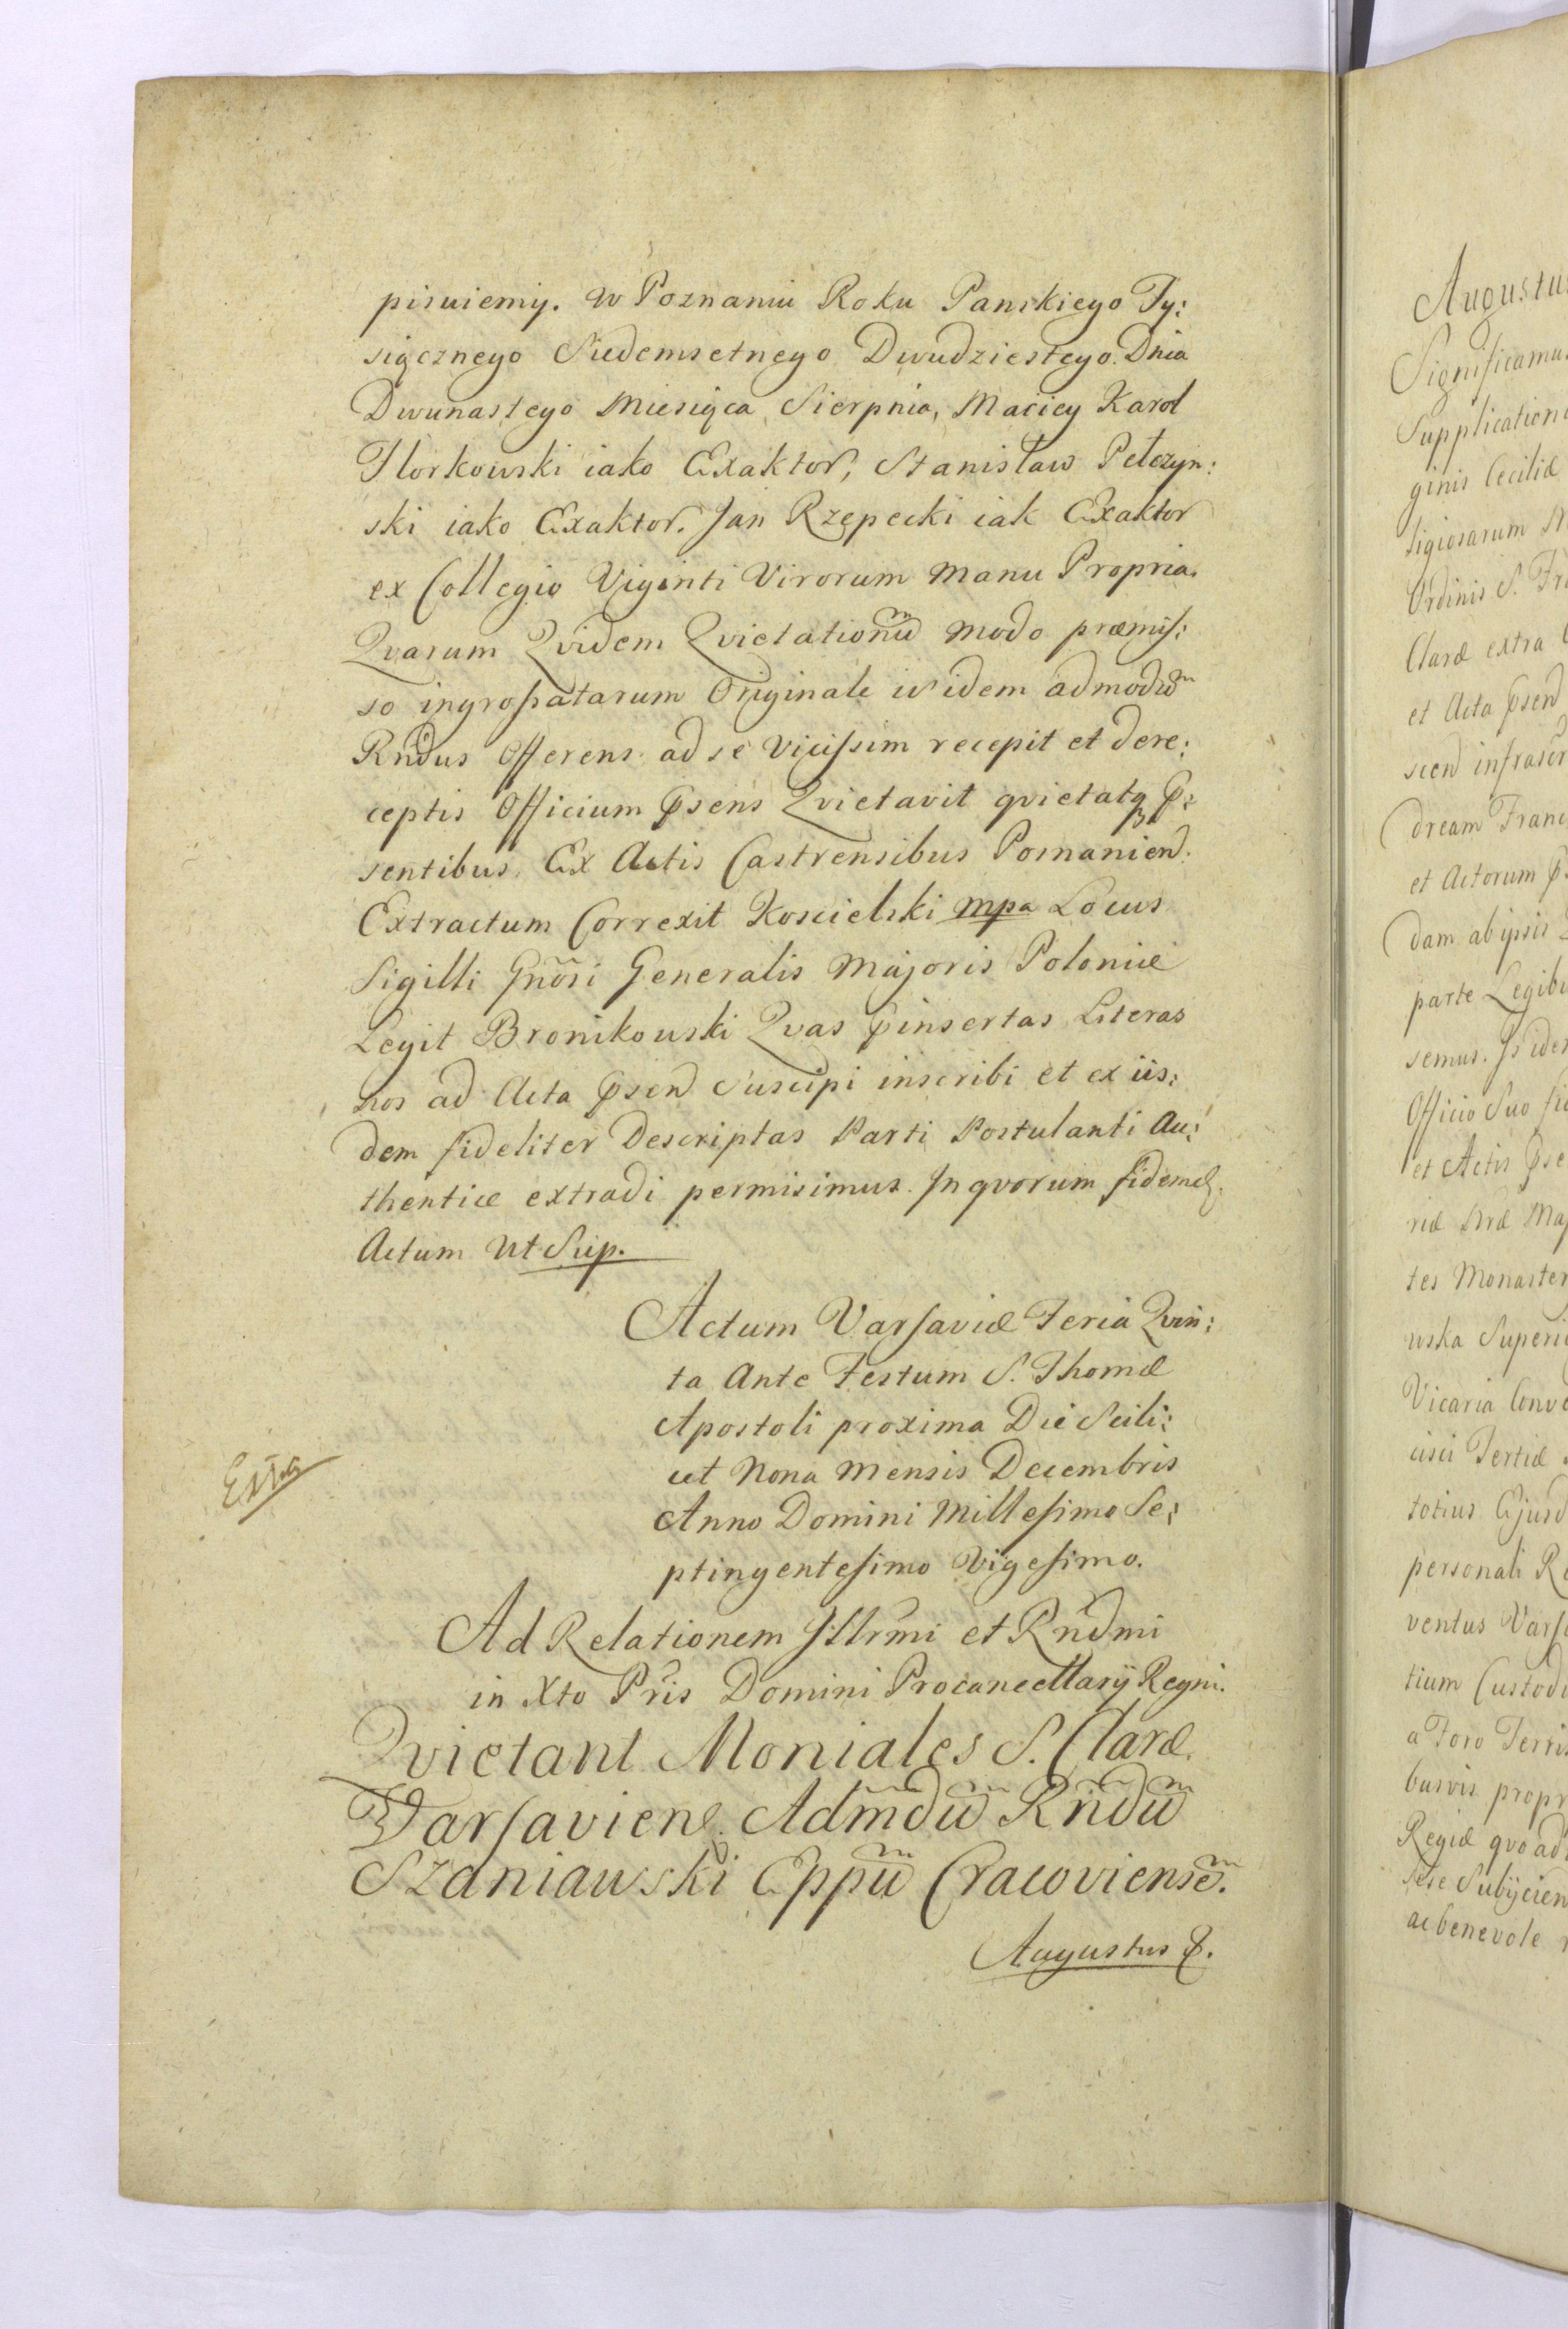 pisuiemy. w Poznaniu Roku Panskiego Ty:
siącznego Siedemsetnego Dwudziestego. Dnia
Dwunastego Miesiąca Sierpnia, Maciey Karol
Horkowski iako Exaktor, Stanisław Pełczyn:
ski iako Exaktor. Jan Rzępecki iak Exaktor
ex Collegio Viginti Virorum Manu Propria.
Qvarum Qvidem Qvietationũ modo præmis:
so ingrossatarum Originale is idem admodũ
Rndus Offerens ad se vicissim recepit et de re:
ceptis Officium psens Qvietavit qvietatq p:
sentibus. Ex Actis Castrensibus Posnanien.
Extractum Correxit Koscielski mpa Locus
Sigilli Gnõsi Generalis Majoris Poloniæ
Legit Bronikowski Qvas pinsertas Literas
nos ad Acta psen Suscipi inscribi et ex iis:
dem fideliter Descriptas Parti Postulanti Au:
thenticæ extradi permisimus. In qvorum fidem &.
Actum Ut Sup.
Actum Varsaviæ Feria Qvin:
ta Ante Festum S. Thomæ
Apostoli proxima Die Scili:
cet Nona Mensis Decembris
Anno Domini Millesimo Se:
ptingentesimo Vigesimo.
Ad Relationem Illrmi et Rndmi
in Xto Pris Domini Procancellarÿ Regni.
Qvietant Moniales S. Claræ
Varsavien. Admdũ Rndũ
Szaniawski Eppũ Cracoviensẽ.
Augustus &.
Augustu
Significamu
Supplication
ginis Ceciliæ
ligiosarum M
Ordinis S. Fra
Claræ extra
et Acta psen
scen infrascr
dream Franc
et Actorum p
dam ab ipsis
parte Legib
semus. Is ide
Officio Suo fi
et Actis pse
riæ Snæ Maj
tes Monaster
wska Superi
Vicaria Conve
cisci Tertiæ
totius Ejusd
personali Re
ventus Varsa
tium Custodi
a Foro Terris
busvis propr
Regiæ qvoad
sese Subÿcien
ac benevole